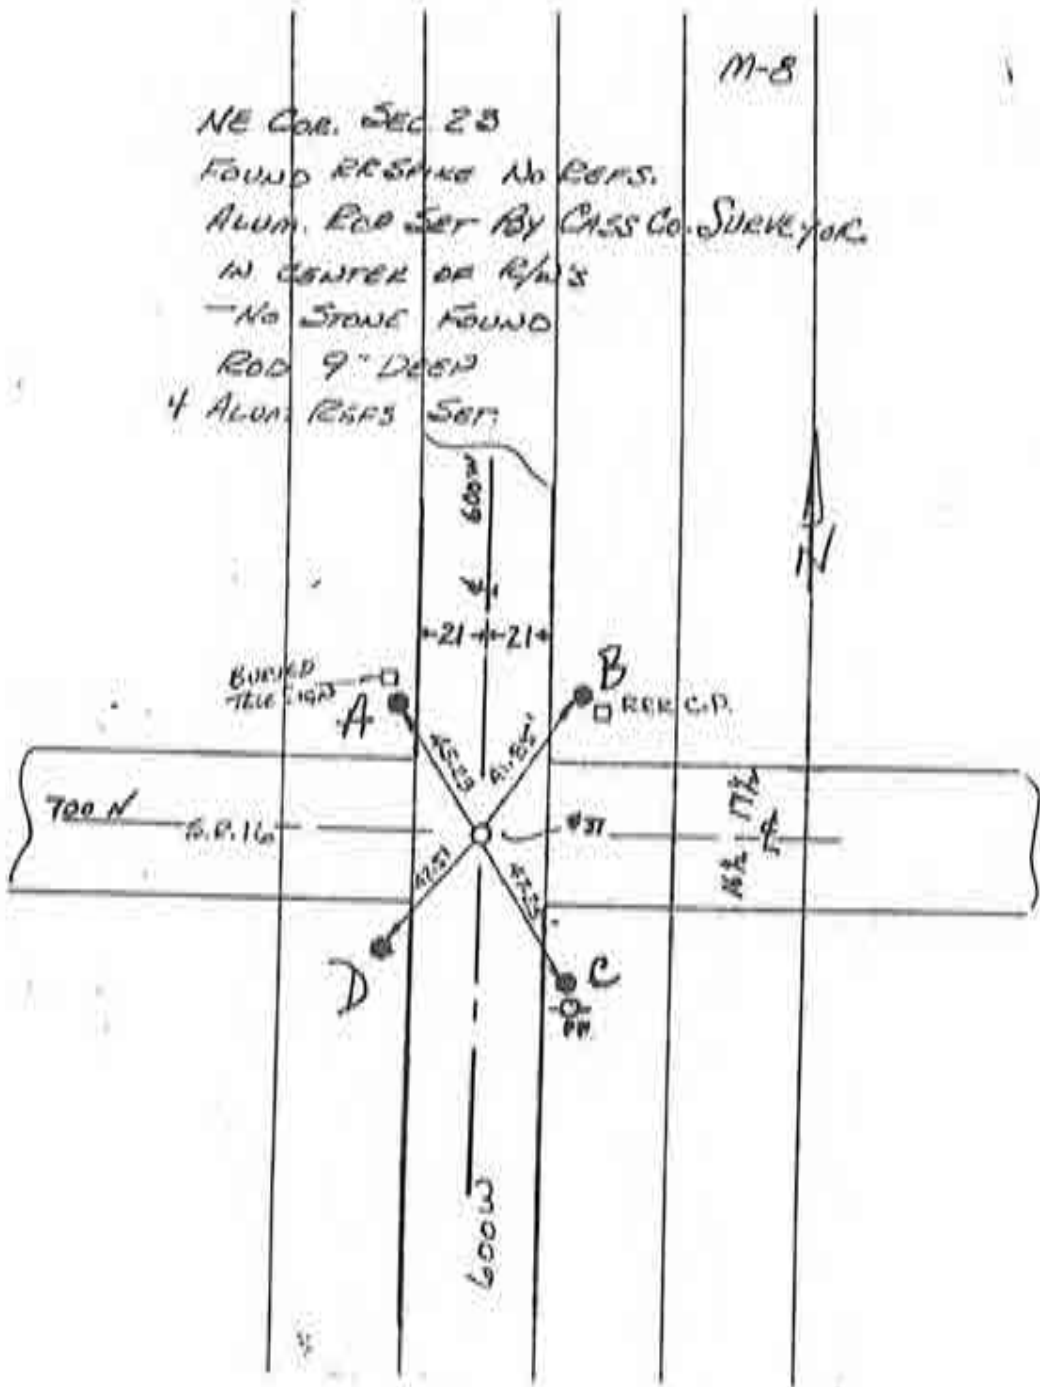 M-8
NE COR. SEC 23
FOUND RR SPIKE NO REFS.
ALUM. ROD SET BY CASS CO. SURVEYOR
IN CENTER OF R/W'S
- NO STONE FOUND
ROD 9" DEEP
4 ALUM. REFS SET.
600W
℄
N
21 21
BURIED
TELE SIGN
A
B
RER C.P.
700 N
S.R. 16
℄
16½ 17½
D
C
PP.
600W